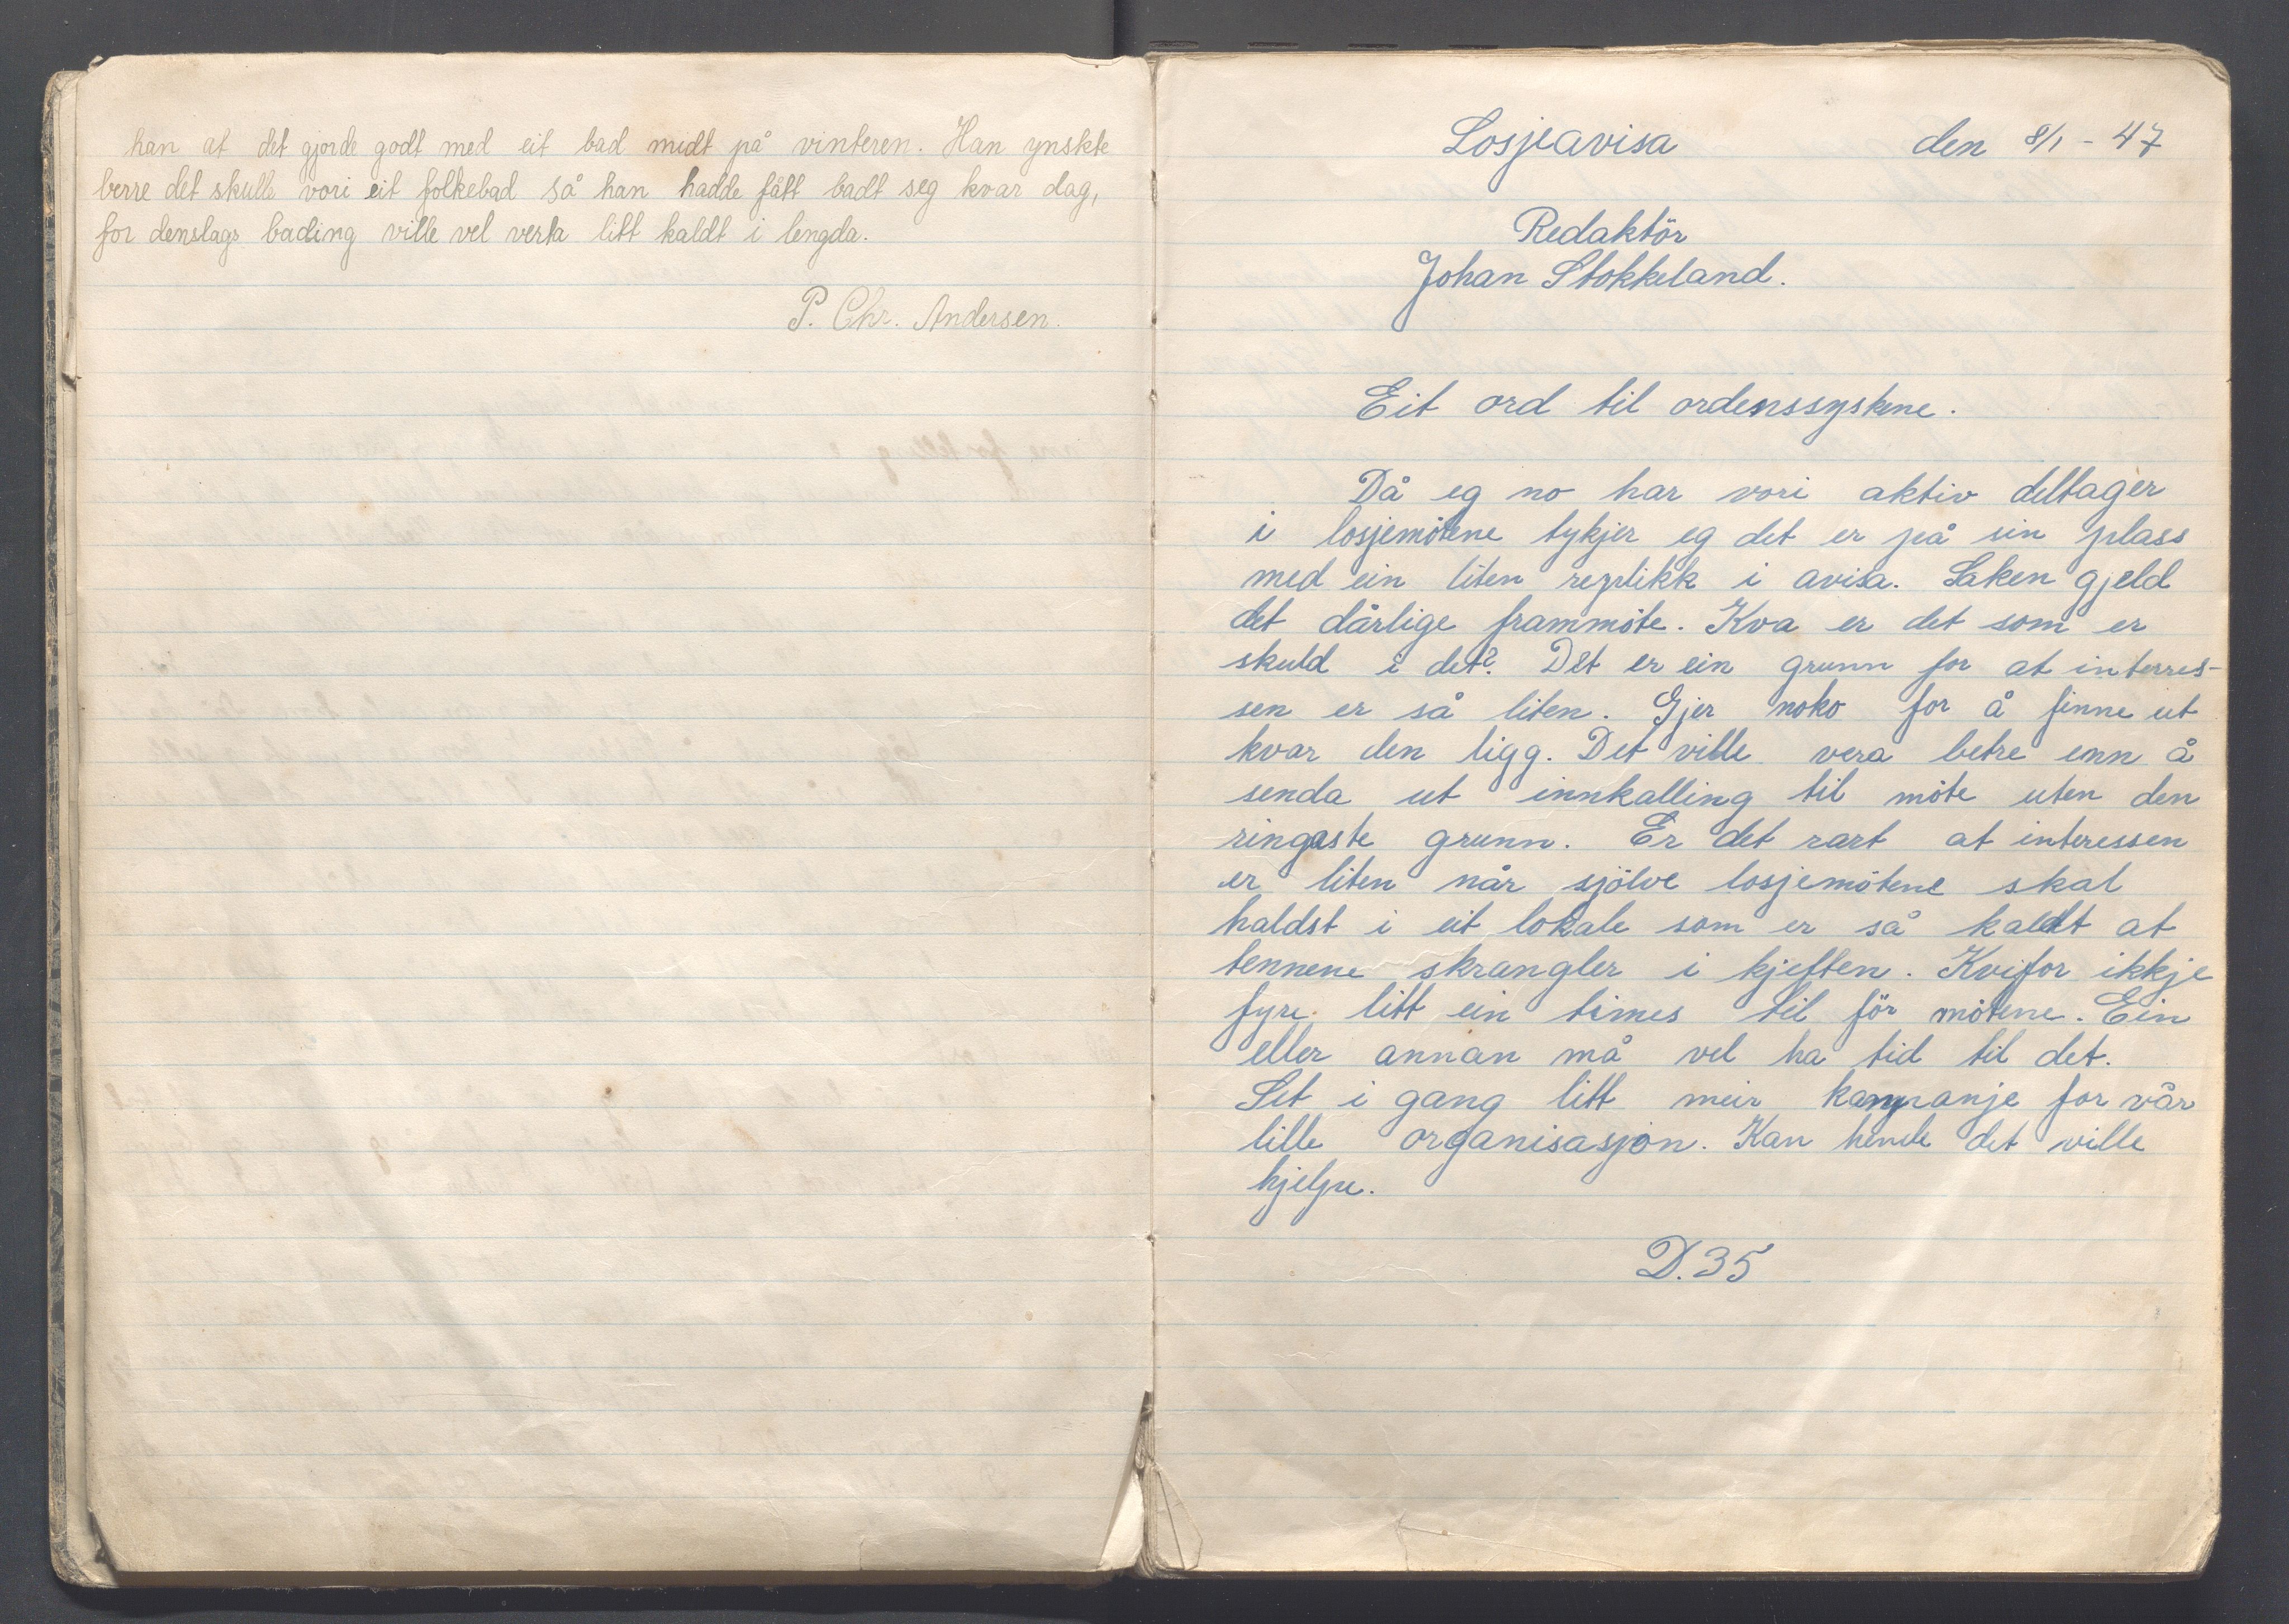 han at det gjorde godt med eit bad midt på vinteren. Han ynskte
berre det skulle vori eit folkebad så han hadde fått badt seg kvar dag,
for denslags bading ville vel verta litt kaldt i lengda.
P. Chr. Andersen.
Losjeavisa den 8/1 - 47
Redaktör
Johan Stokkeland.
Eit ord til ordenssyskene.
Då eg no har vori aktiv deltager
i losjemötene tykjer eg det er på sin plass
med ein liten replikk i avisa. Saken gjeld
det dårlige frammöte. Kva er det som er
skuld i det? Det er ein grunn for at interres-
sen er så liten. Gjer noko for å finne ut
kvar den ligg. Det ville vera betre enn å
senda ut innkalling til möte uten den
ringaste grunn. Er det rart at interessen
er liten når sjölve losjemötene skal
haldst i eit lokale som er så kaldt at
tennene skrangler i kjeften. Kvifor ikkje
fyre litt ein times til för mötene. Ein
eller annan må vel ha tid til det.
Set i gang litt meir kampanje for vår
lille organisasjon. Kan hende det ville
hjelpe.
D.35